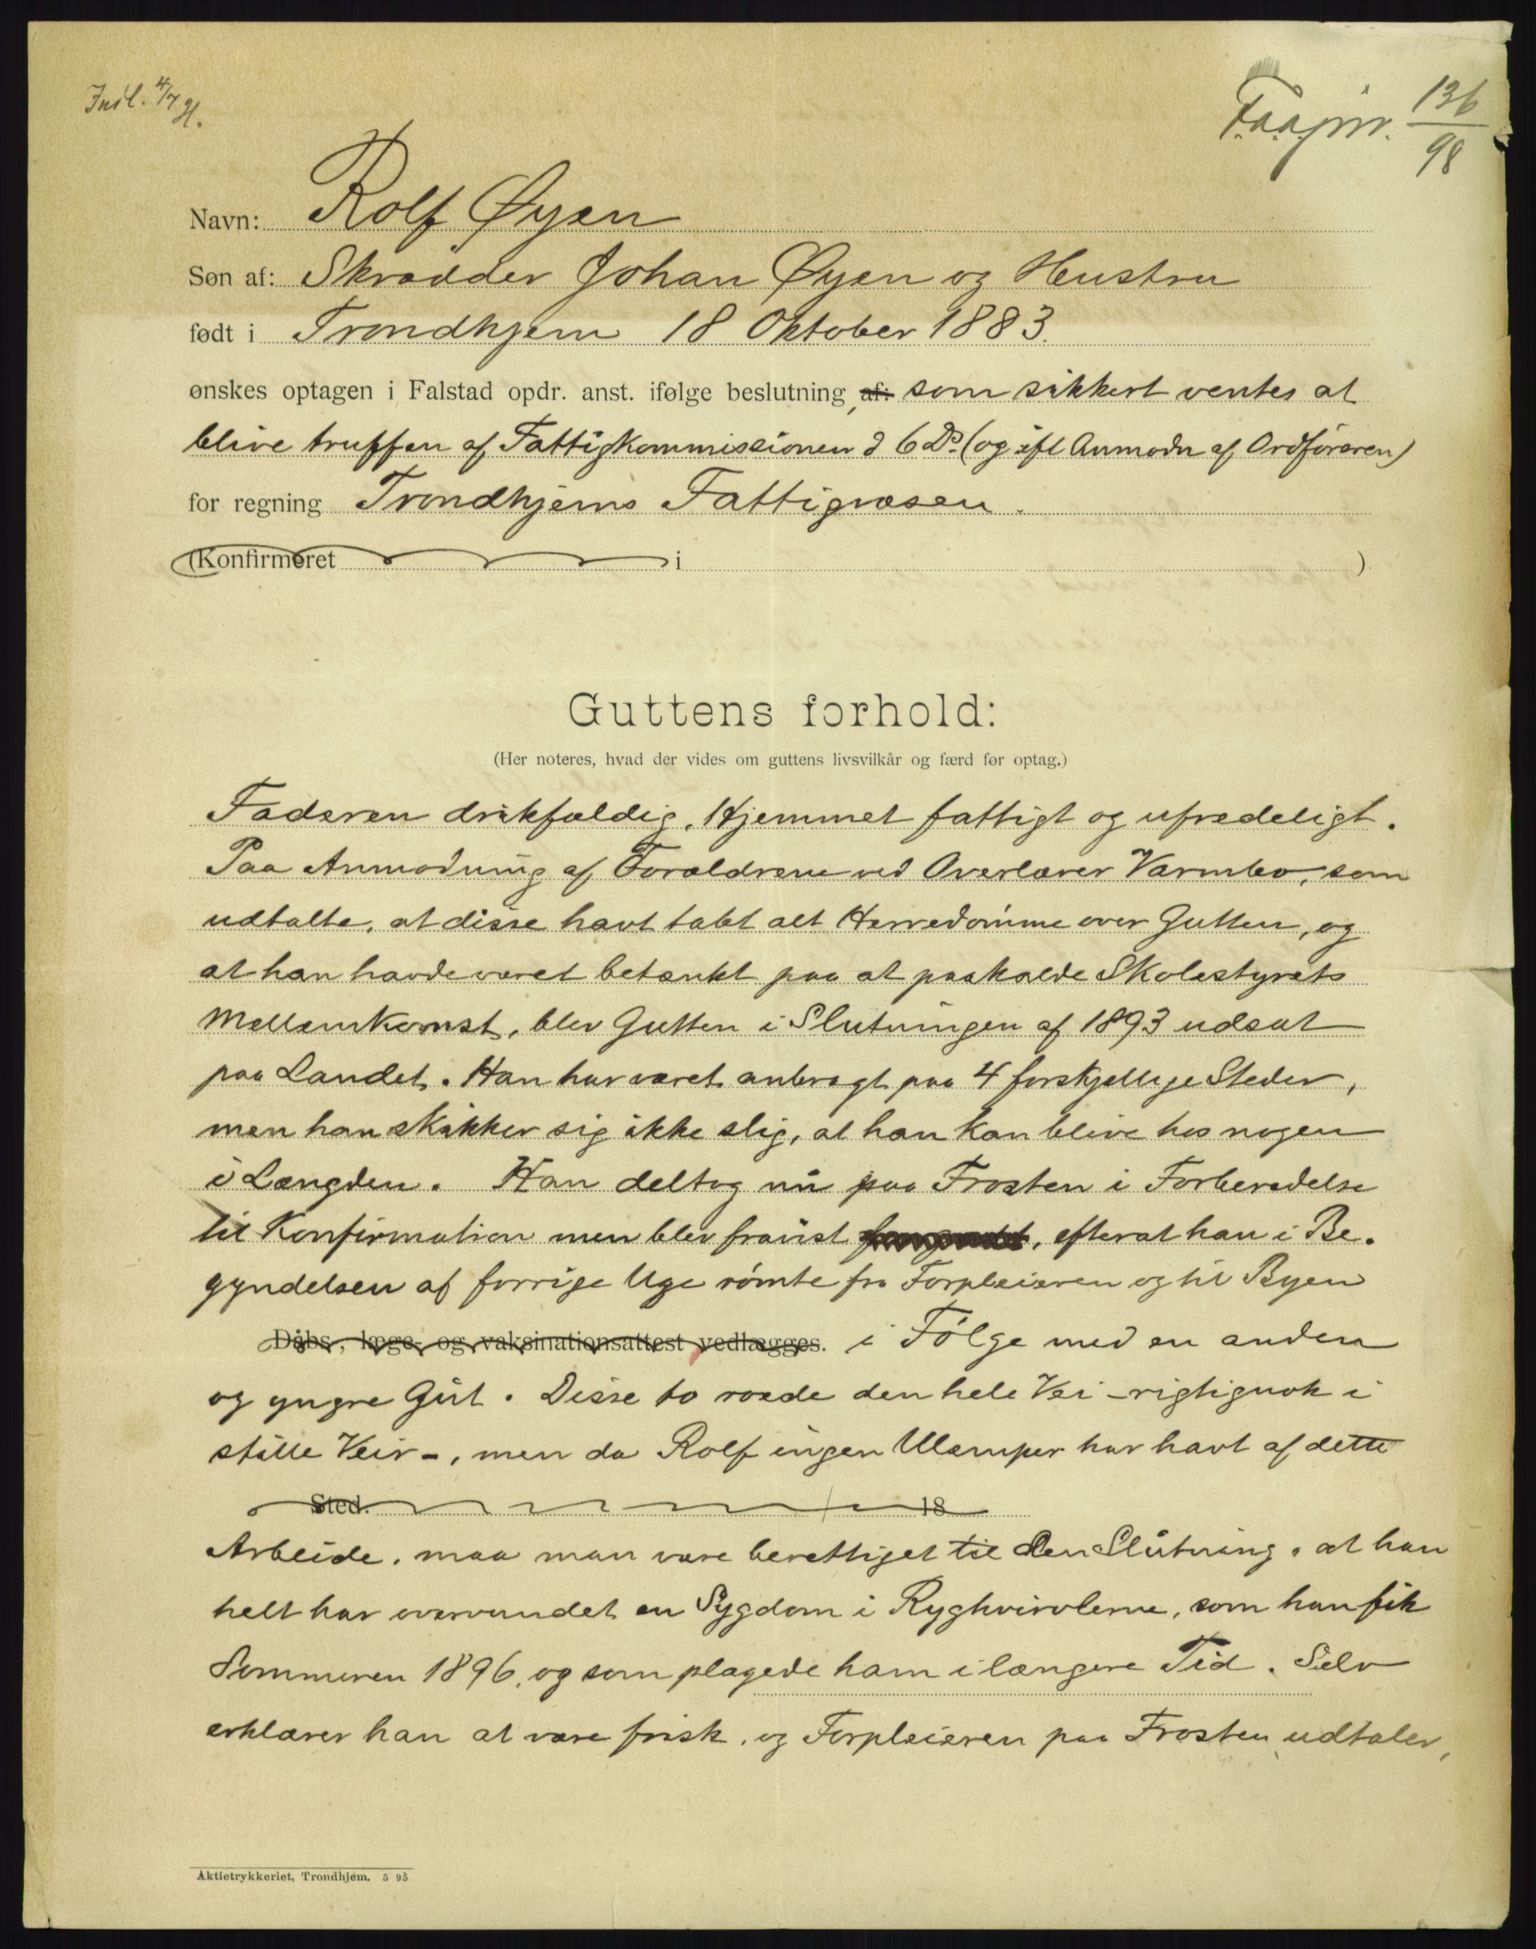 Indl. 4/7 98.
F.a.a.jnr. 136/98
Navn: Rolf Øyen
Søn af: Skrædder Johan Øyen og Hustru
født i Trondhjem 18 Oktober 1883.
ønskes optagen i Falstad opdr. anst. ifølge beslutning, af: som sikkert ventes at
blive truffen af Fattigkommissionen d 6 Ds. (og ifl Anmodn af Ordføreren)
for regning Trondhjems Fattigvæsen.
(Konfirmeret i )
Guttens forhold:
(Her noteres, hvad der vides om guttens livsvilkår og færd før optag.)
Faderen drikfældig. Hjemmet fattigt og ufredeligt.
Paa Anmodning af Forældrene ved Overlærer Varmbo, som
udtalte, at disse havt tabt alt Herredømme over Gutten, og
at han havde været betænkt paa at paakalde Skolestyrets
Mellemkomst, blev Gutten i Slutningen af 1893 udsat
paa Landet. Han har været anbragt paa 4 forskjellige Steder,
men han skikker sig ikke slig, at han kan blive hos nogen
i Længden. Han deltog nu paa Frosten i Forberedelse
til Konfirmation men blev fravist, efterat han i Be-
gyndelsen af forrige Uge rømte fra Forpleieren og til Byen
Dåbs-, læge- og vaksinationsattest vedlægges. i Følge med en anden
og yngre Gut. Disse to roede den hele Vei – rigtignok i
stille Veir –, men da Rolf ingen Ulemper har havt af dette
Sted. 18
Arbeide, maa man være berettiget til den Slutning, at han
helt har overvundet en Sygdom i Ryghvirvlerne, som han fik
Sommeren 1896, og som plagede ham i længere Tid. Selv
erklærer han at være frisk, og Forpleieren paa Frosten udtaler,
Aktietrykkeriet, Trondhjem. 5 95